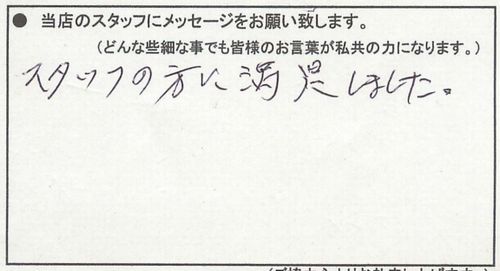 ● 当店のスタッフにメッセージをお願い致します。
(どんな些細な事でも皆様のお言葉が私共の力になります。)
スタッフの方に満足しました。